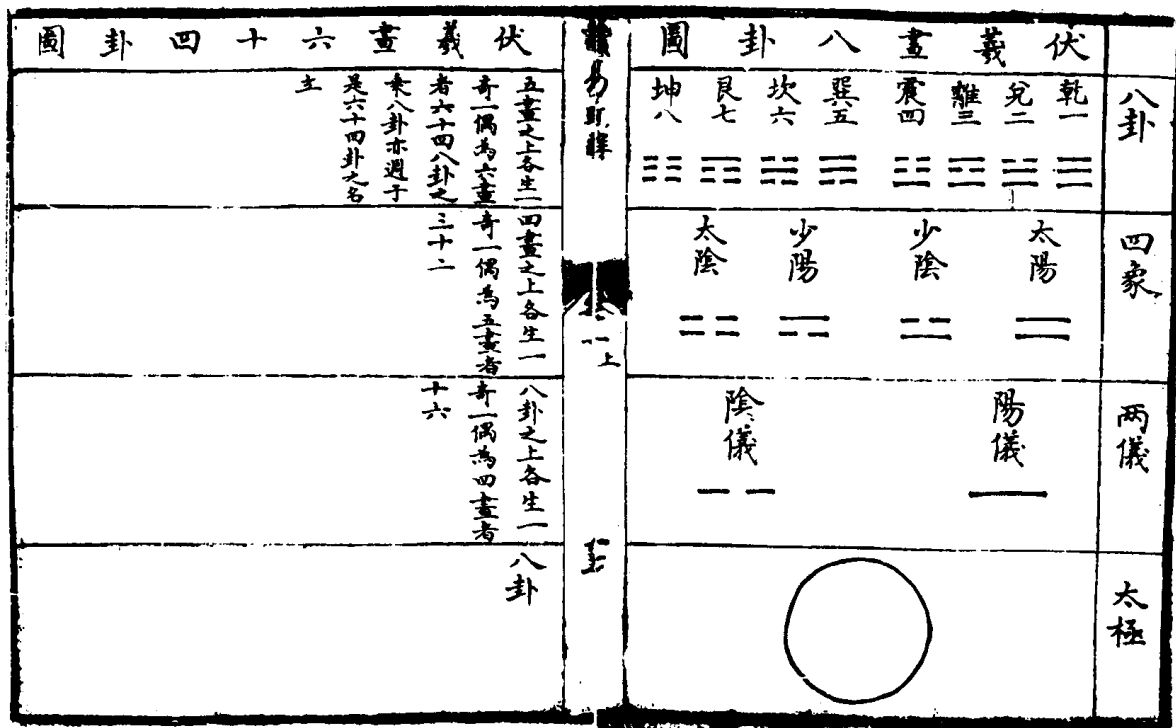 伏羲畫八卦圖
八卦
乾一
兌二
離三
震四
巽五
坎六
艮七
坤八
四象
太陽
少陰
少陽
太陰
两儀
陽儀
陰儀
太極
易
上
伏羲畫六十四卦圖
五畫之上各生一
奇一偶為六畫
者六十四八卦之
乘八卦亦週于
是六十四卦之名
立
四畫之上各生一
奇一偶為五畫者
三十二
八卦之上各生一
奇一偶為四畫者
十六
八卦